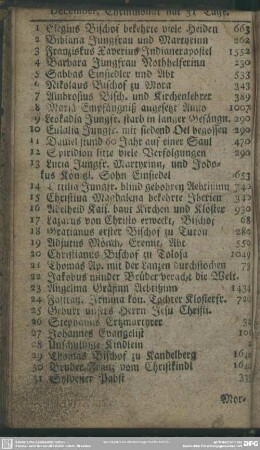 December, Christmonat hat 31 Tage.
1 Elegius Bischof bekehrt viele Heiden 663
2 Bibiana Jungfrau und Martyrinn 262
3 Franziskus Xaverius Indianerapostel 1552
4 Barbara Jungfrau Nothhelferinn 230
5 Sabbas Einsiedler und Abt 533
6 Nikolaus Bischof zu Mora 343
7 Ambrosius Bisch. und Kirchenlehrer 389
8 Mariä Empfängniß 1007
9 Leokadia Jungfr. starb in langer Gefängn. 290
10 Eulalia Jungfr. mit siedend Oel begossen 290
11 Daniel stund 60 Jahr auf einer Saul 470
12 Spiridion litte viele Verfolgungen 290
13 Lucia Jungfr. Martyrinn, und Jodo-
kus Königl. Sohn Einsiedel 653
14 Jungfr. blind gebohren Aebtißinn 740
15 Christina Magdalena bekehrte Iberien 340
16 Adelheid Kais. baut Kirchen und Klöster 930
17 Lazarus von Christo erweckt, Bischof 68
18 Gratianus erster Bischof zu Turon 280
19 Adjutus Mönch, Eremit, Abt 550
20 Christianus Bischof zu Tolosa 1049
21 Thomas Ap. mit der Lanzen durchstochen 73
22 Jakobus minder Brüder veracht die Welt.
23 Angelina Gräfinn Aebtißinn 1434
24 Irmina kön. Tochter Klosterfr. 720
25 Geburt unsers Herrn Jesu Christi.
26 Stephanus Ertzmartyrer
27 Johannes Evangelist
28 Unschuldige Kindlein
29 Thomas Bischof zu Kandelberg
30 Bruder Franz vom Christkindl
31 Sylvester Pabst
Mor-